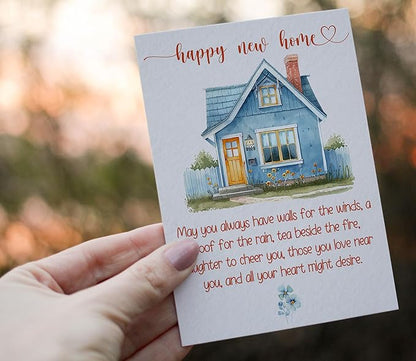 happy new home
May you always have walls for the winds, a
roof for the rain, tea beside the fire,
laughter to cheer you, those you love near
you, and all your heart might desire.